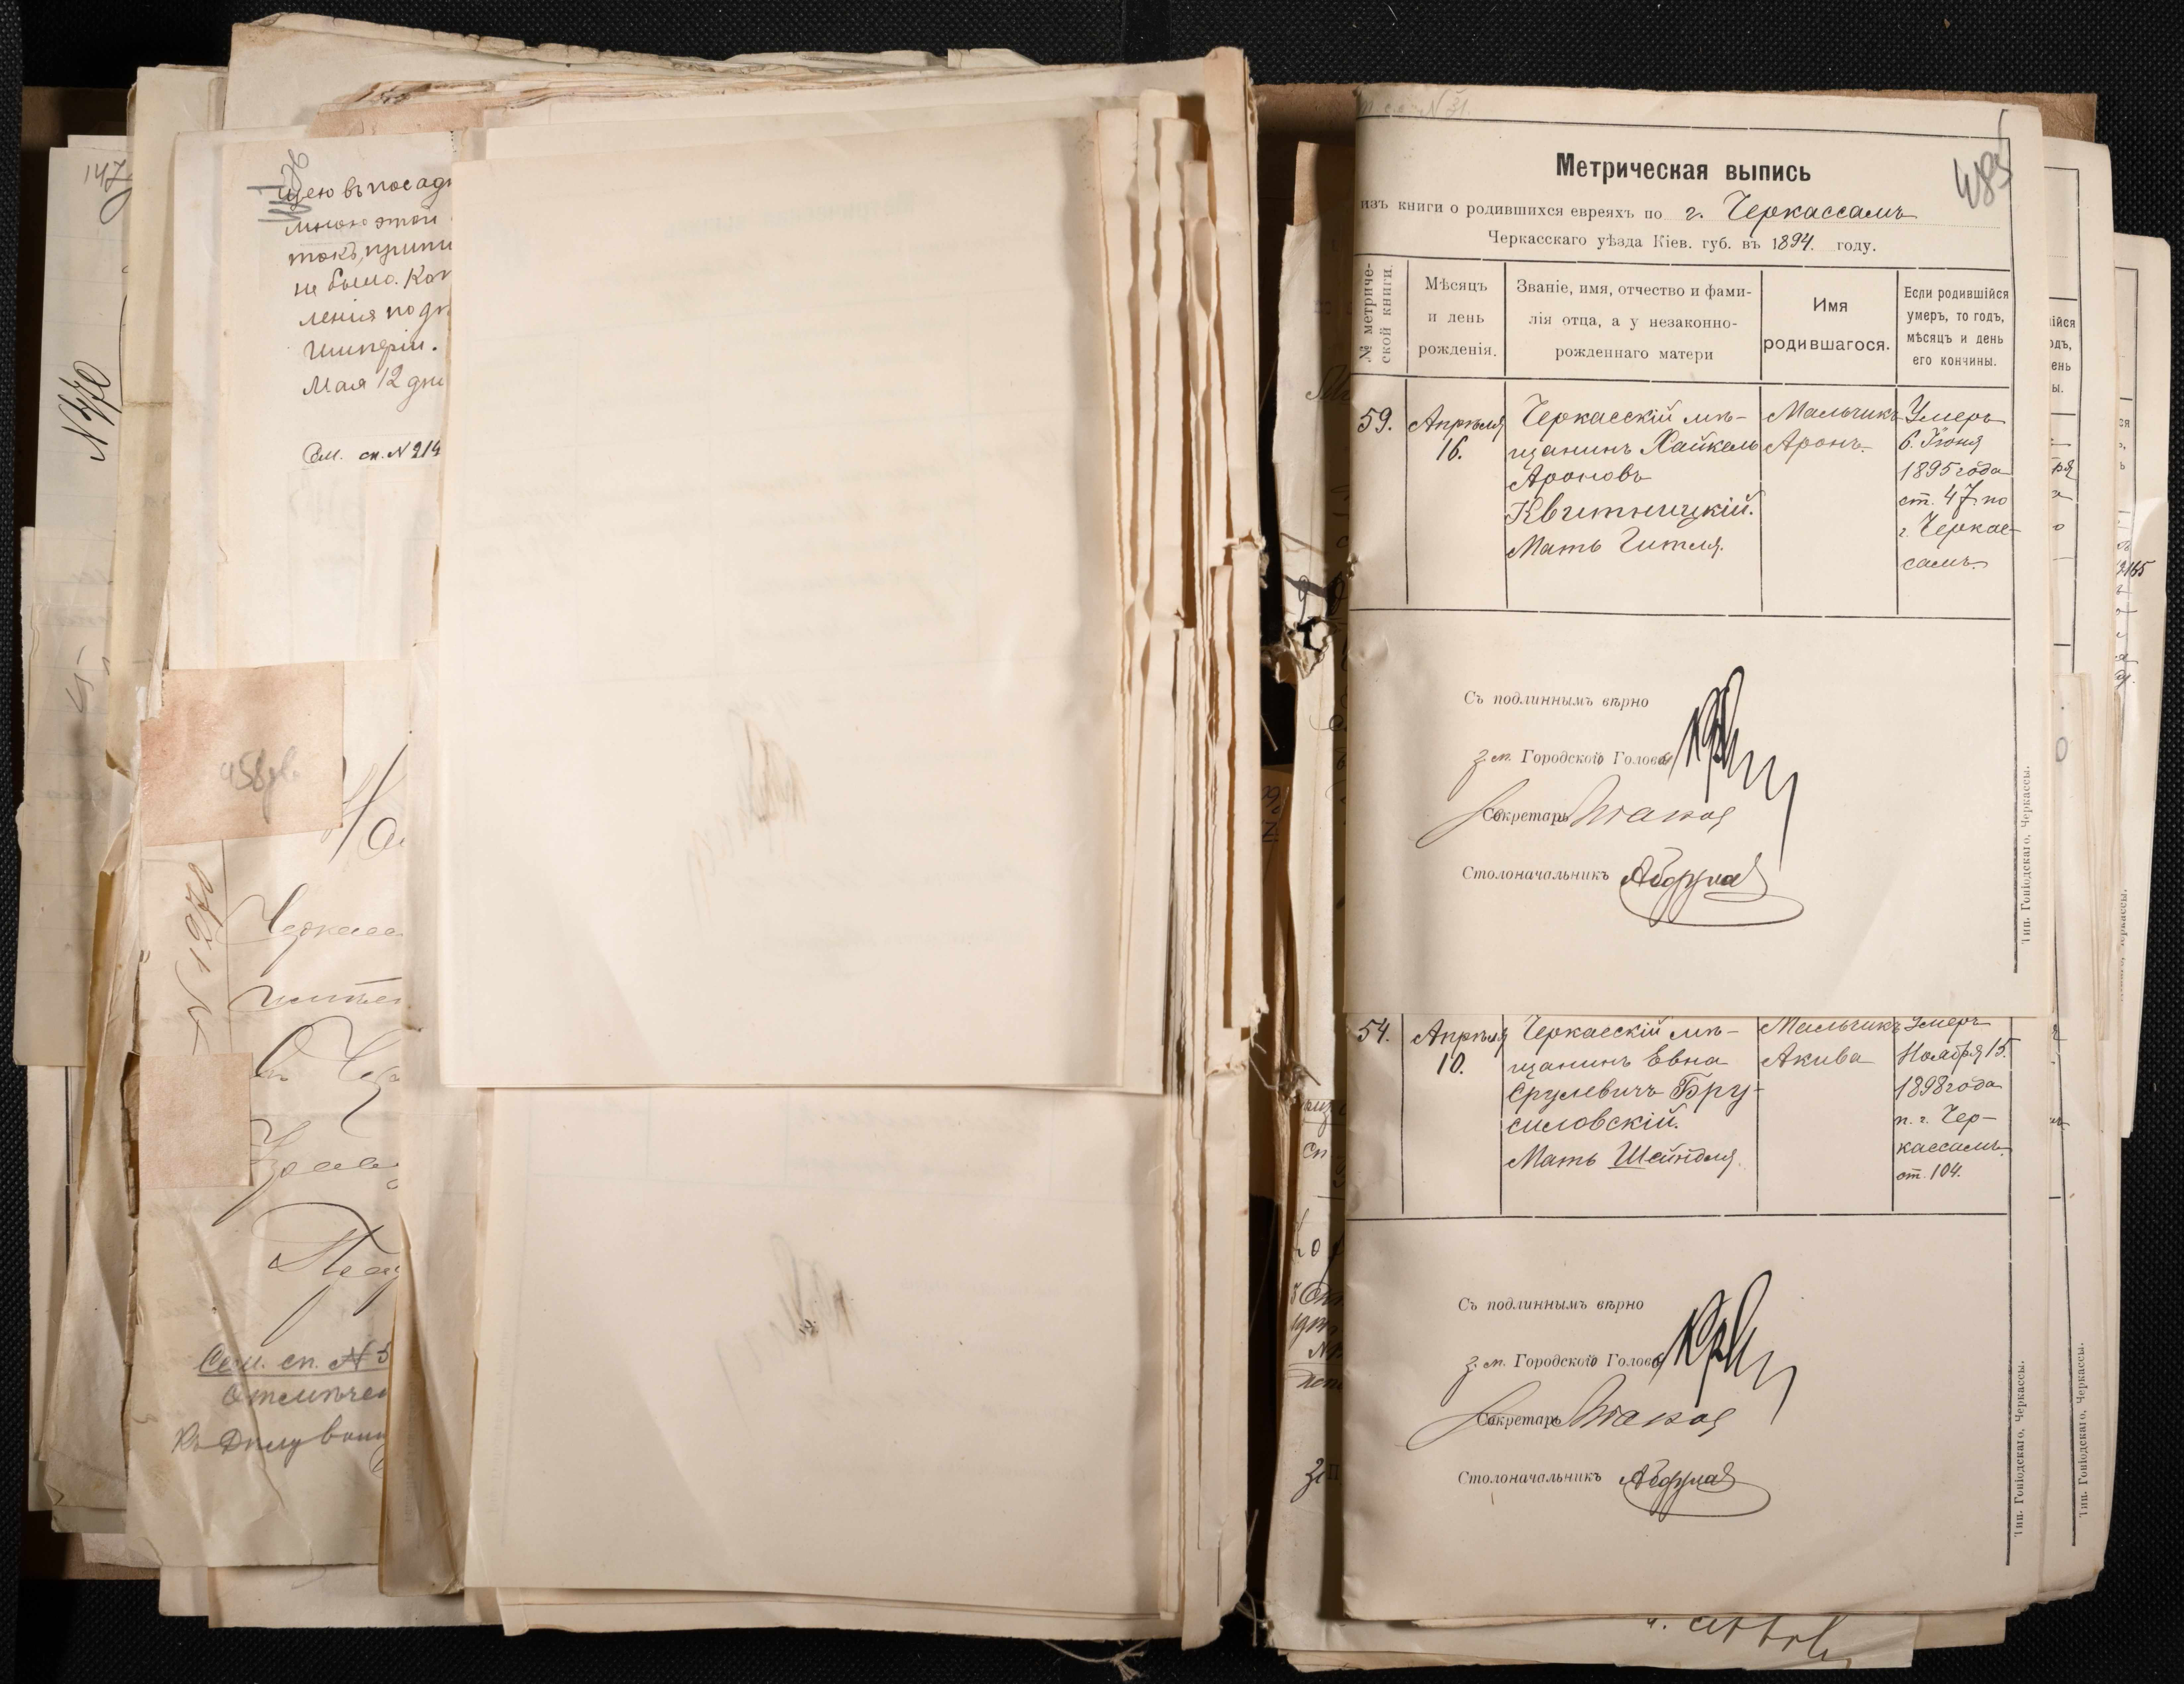 147
N 770
щею въ посад
мною этой
токъ, припи
не было. Кон
ленія по дѣ
Имперіи.
Мая 12 дня
Сем. сп. N 214
458
N 1270
Черкасс
Сем. сп. N 5
Отмѣчен
Къ дѣлу воин
N 31.
485
Метрическая выпись
изъ книги о родившихся евреяхъ по г. Черкассамъ
Черкасскаго уѣзда Кіев. губ. въ 1894. году.
№ метриче-
ской книги.
Мѣсяцъ
и день
рожденія.
Званіе, имя, отчество и фами-
лія отца, а у незаконно-
рожденнаго матери
Имя
родившагося.
Если родившійся
умеръ, то годъ,
мѣсяцъ и день
его кончины.
59.
Апрѣля
16.
Черкасскій мѣ-
щанинъ Хайкель
Ароновъ
Квитницкій.
Мать Гитля.
Мальчикъ
Аронъ.
Умеръ
6. Іюня
1895 года
ст. 47. по
г. Черкас-
самъ.
Съ подлиннымъ вѣрно
з. м. Городского Головы
Секретарь
Столоначальникъ
Тип. Гоніодскаго, Черкассы.
54.
Апрѣля
10.
Черкасскій мѣ-
щанинъ Евна
Срулевичъ Бру-
силовскій.
Мать Шейндля.
Мальчикъ
Акива
Умеръ
Ноября 15.
1898 года
п. г. Чер-
кассамъ.
ст. 104.
Съ подлиннымъ вѣрно
з. м. Городского Головы
Секретарь
Столоначальникъ
Тип. Гоніодскаго, Черкассы.
Тип. Гоніодскаго, Черкассы.